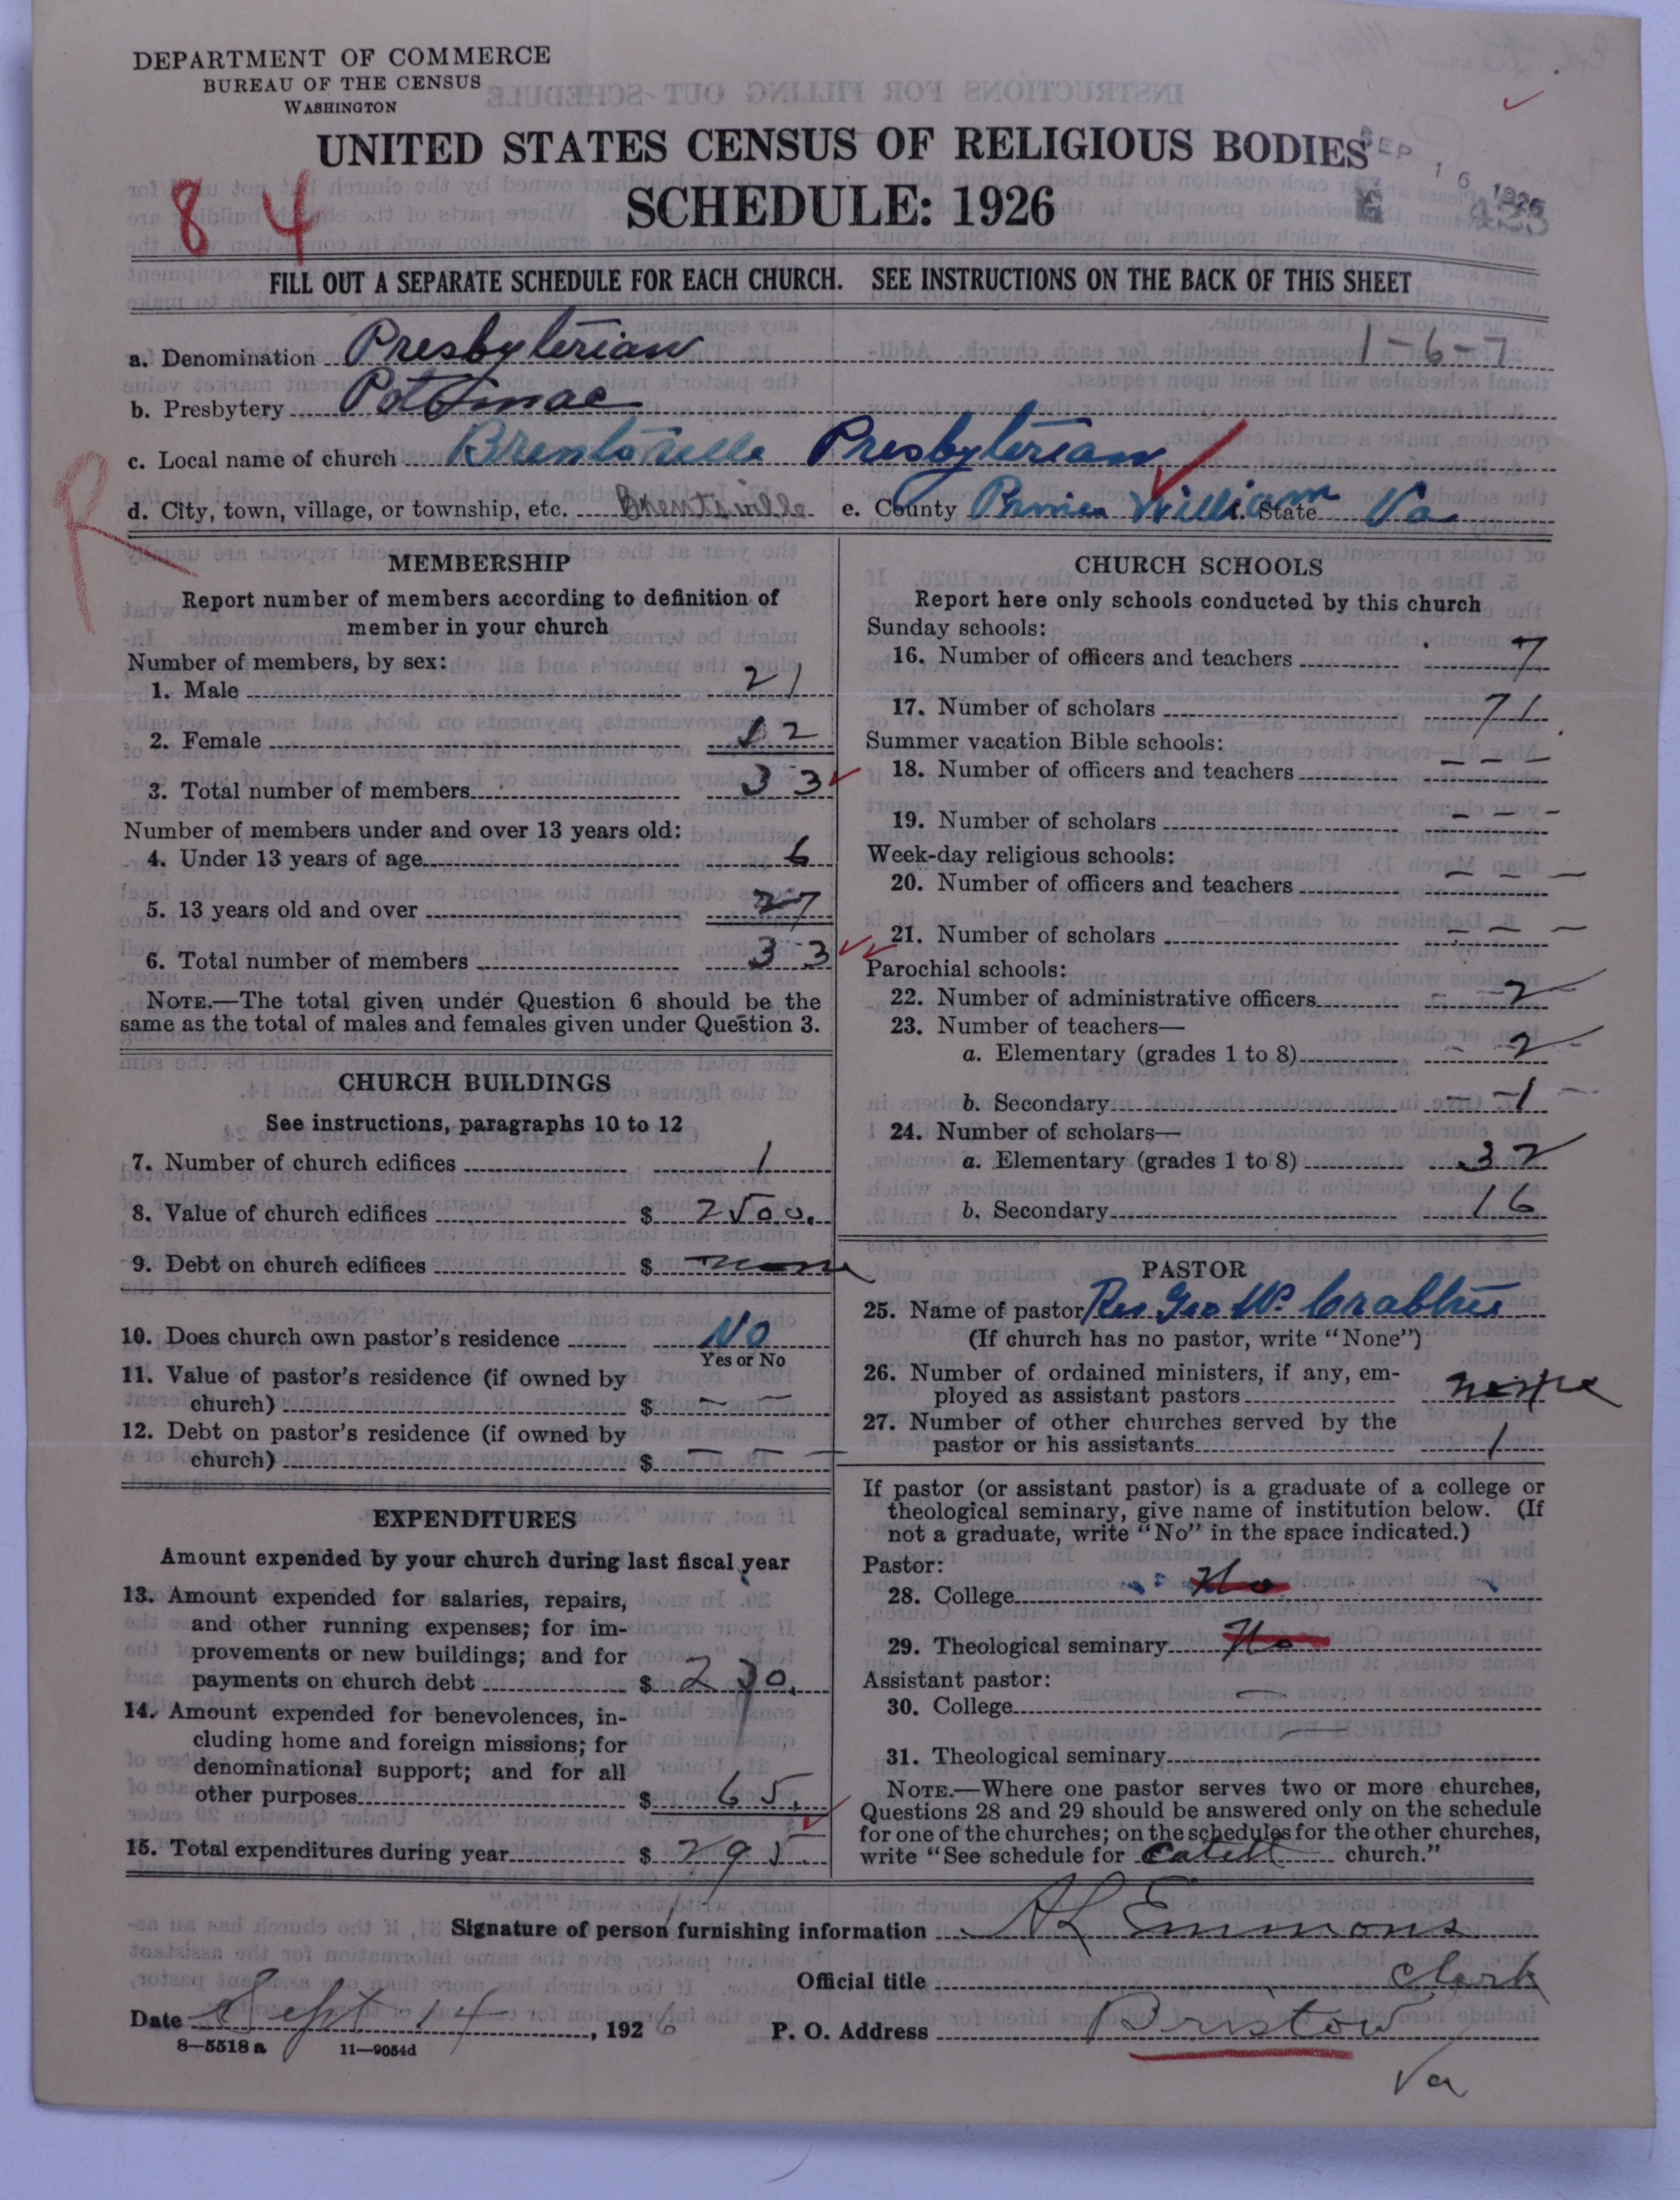 DEPARTMENT OF COMMERCE
BUREAU OF THE CENSUS
WASHINGTON
UNITED STATES CENSUS OF RELIGIOUS BODIES
SCHEDULE: 1926
SEP 16 1926
84
FILL OUT A SEPARATE SCHEDULE FOR EACH CHURCH. SEE INSTRUCTIONS ON THE BACK OF THIS SHEET
a. Denomination Presbyterian 1-6-7
b. Presbytery Potomac
c. Local name of church Brentsville Presbyterian
R
d. City, town, village, or township, etc. Brentsville e. County Prince William State Va
MEMBERSHIP
Report number of members according to definition of
member in your church
Number of members, by sex:
1. Male 21
2. Female 12
3. Total number of members 33
Number of members under and over 13 years old:
4. Under 13 years of age 6
5. 13 years old and over 27
6. Total number of members 33
NOTE.—The total given under Question 6 should be the
same as the total of males and females given under Question 3.
CHURCH BUILDINGS
See instructions, paragraphs 10 to 12
7. Number of church edifices 1
8. Value of church edifices $ 2500.
9. Debt on church edifices $ none
10. Does church own pastor's residence No
Yes or No
11. Value of pastor's residence (if owned by
church) $ – –
12. Debt on pastor's residence (if owned by
church) $ – – –
EXPENDITURES
Amount expended by your church during last fiscal year
13. Amount expended for salaries, repairs,
and other running expenses; for im-
provements or new buildings; and for
payments on church debt $ 230.
14. Amount expended for benevolences, in-
cluding home and foreign missions; for
denominational support; and for all
other purposes $ 65.
15. Total expenditures during year $ 295.
CHURCH SCHOOLS
Report here only schools conducted by this church
Sunday schools:
16. Number of officers and teachers 7
17. Number of scholars 71
Summer vacation Bible schools:
18. Number of officers and teachers – – –
19. Number of scholars – – –
Week-day religious schools:
20. Number of officers and teachers – – –
21. Number of scholars – – –
Parochial schools:
22. Number of administrative officers 2
23. Number of teachers—
a. Elementary (grades 1 to 8) 2
b. Secondary 1
24. Number of scholars—
a. Elementary (grades 1 to 8) 32
b. Secondary 16
PASTOR
25. Name of pastor Rev Geo W. Crabtree
(If church has no pastor, write "None")
26. Number of ordained ministers, if any, em-
ployed as assistant pastors none
27. Number of other churches served by the
pastor or his assistants 1
If pastor (or assistant pastor) is a graduate of a college or
theological seminary, give name of institution below. (If
not a graduate, write "No" in the space indicated.)
Pastor:
28. College No
29. Theological seminary No
Assistant pastor:
30. College —
31. Theological seminary —
NOTE.—Where one pastor serves two or more churches,
Questions 28 and 29 should be answered only on the schedule
for one of the churches; on the schedules for the other churches,
write "See schedule for church."
Signature of person furnishing information Emmons
Official title Clerk
Date Sept 14, 1926 P. O. Address Bristow
Va
8—5518 a 11—9054d